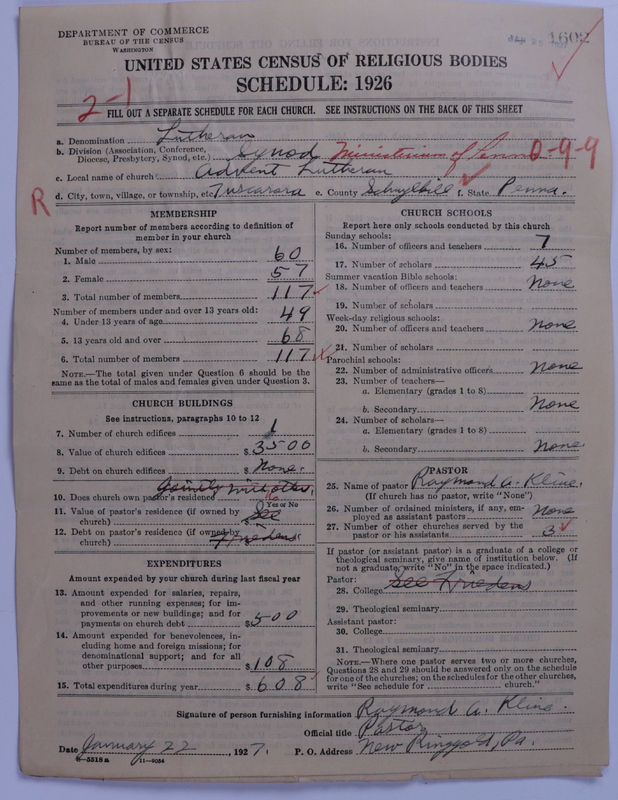 DEPARTMENT OF COMMERCE
BUREAU OF THE CENSUS
WASHINGTON
1602
UNITED STATES CENSUS OF RELIGIOUS BODIES
SCHEDULE: 1926
2-1
FILL OUT A SEPARATE SCHEDULE FOR EACH CHURCH. SEE INSTRUCTIONS ON THE BACK OF THIS SHEET
a. Denomination Lutheran
b. Division (Association, Conference, Diocese, Presbytery, Synod, etc.) Synod Ministerium of Penna 0-9-9
c. Local name of church Advent Lutheran
R
d. City, town, village, or township, etc. Tuscarora e. County Schuylkill f. State Penna.
MEMBERSHIP
Report number of members according to definition of member in your church
Number of members, by sex:
1. Male 60
2. Female 57
3. Total number of members 117
Number of members under and over 13 years old:
4. Under 13 years of age 49
5. 13 years old and over 68
6. Total number of members 117
NOTE.—The total given under Question 6 should be the same as the total of males and females given under Question 3.
CHURCH BUILDINGS
See instructions, paragraphs 10 to 12
7. Number of church edifices 1
8. Value of church edifices $ 3500
9. Debt on church edifices $ None.
Jointly with other.
10. Does church own pastor's residence No
Yes or No
11. Value of pastor's residence (if owned by church) $ See
12. Debt on pastor's residence (if owned by church) Friedens
EXPENDITURES
Amount expended by your church during last fiscal year
13. Amount expended for salaries, repairs, and other running expenses; for improvements or new buildings; and for payments on church debt $ 500
14. Amount expended for benevolences, including home and foreign missions; for denominational support; and for all other purposes $ 108
15. Total expenditures during year $ 608
CHURCH SCHOOLS
Report here only schools conducted by this church
Sunday schools:
16. Number of officers and teachers 7
17. Number of scholars 45
Summer vacation Bible schools:
18. Number of officers and teachers None
19. Number of scholars
Week-day religious schools:
20. Number of officers and teachers None
21. Number of scholars
Parochial schools:
22. Number of administrative officers None
23. Number of teachers—
a. Elementary (grades 1 to 8)
b. Secondary None
24. Number of scholars—
a. Elementary (grades 1 to 8)
b. Secondary None
PASTOR
25. Name of pastor Raymond A. Kline.
(If church has no pastor, write "None")
26. Number of ordained ministers, if any, employed as assistant pastors None
27. Number of other churches served by the pastor or his assistants 3
If pastor (or assistant pastor) is a graduate of a college or theological seminary, give name of institution below. (If not a graduate, write "No" in the space indicated.)
Pastor:
28. College See Friedens
29. Theological seminary
Assistant pastor:
30. College
31. Theological seminary
NOTE.—Where one pastor serves two or more churches, Questions 28 and 29 should be answered only on the schedule for one of the churches; on the schedules for the other churches, write "See schedule for church."
Signature of person furnishing information Raymond A. Kline.
Official title Pastor
Date January 22, 1927. P. O. Address New Ringgold, Pa.
8-5518a 11-9054